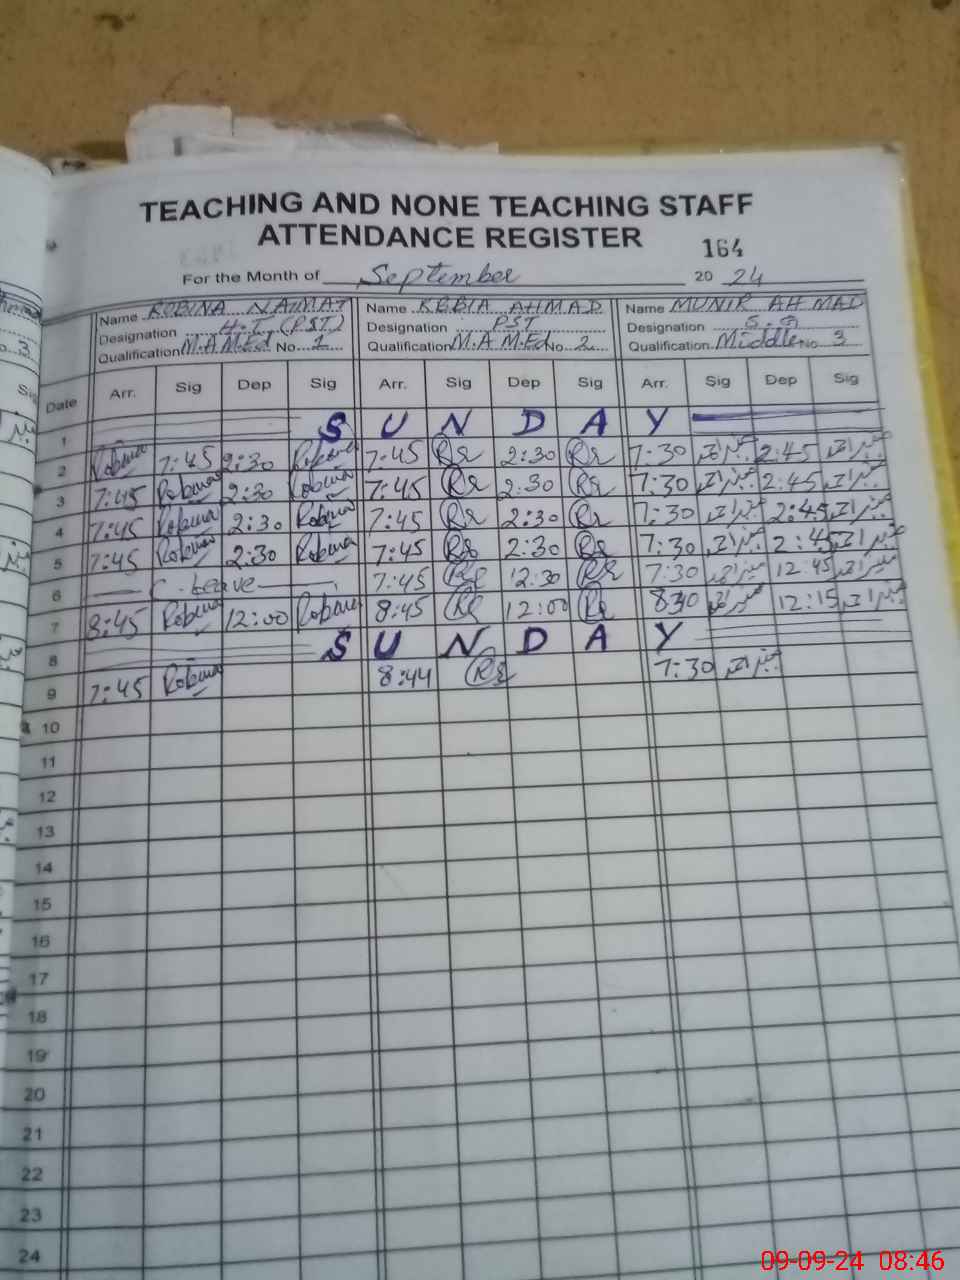 TEACHING AND NONE TEACHING STAFF
ATTENDANCE REGISTER
164
For the Month of September 20 24
Name ROBINA NAIMAT Name REBIA AHMAD Name MUNIR AHMAD
Designation H.T, (PST) Designation PST Designation
Qualification M.A M.Ed No 1 Qualification M.A M.Ed No 2 Qualification Middle No 3
Date Arr. Sig Dep Sig Arr. Sig Dep Sig Arr. Sig Dep Sig
1 S U N D A Y
2 Robina 7:45 2:30 Robina 7:45 Rr 2:30 Rr 7:30 منیر احمد 2:45 منیر احمد
3 7:45 Robina 2:30 Robina 7:45 Rr 2:30 Rr 7:30 منیر احمد 2:45 منیر احمد
4 7:45 Robina 2:30 Robina 7:45 Rr 2:30 Rr 7:30 منیر احمد 2:45 منیر احمد
5 7:45 Robina 2:30 Robina 7:45 Rr 2:30 Rr 7:30 منیر احمد 2:45 منیر احمد
6 Leave 7:45 Rr 12:30 Rr 7:30 منیر احمد 12:45 منیر احمد
7 8:45 Robina 12:00 Robina 8:45 Rr 12:00 Rr 8:30 منیر احمد 12:15 منیر احمد
8 S U N D A Y
9 7:45 Robina 8:44 Rr 7:30 منیر احمد
10
11
12
13
14
15
16
17
18
19
20
21
22
23
24
09-09-24 08:46